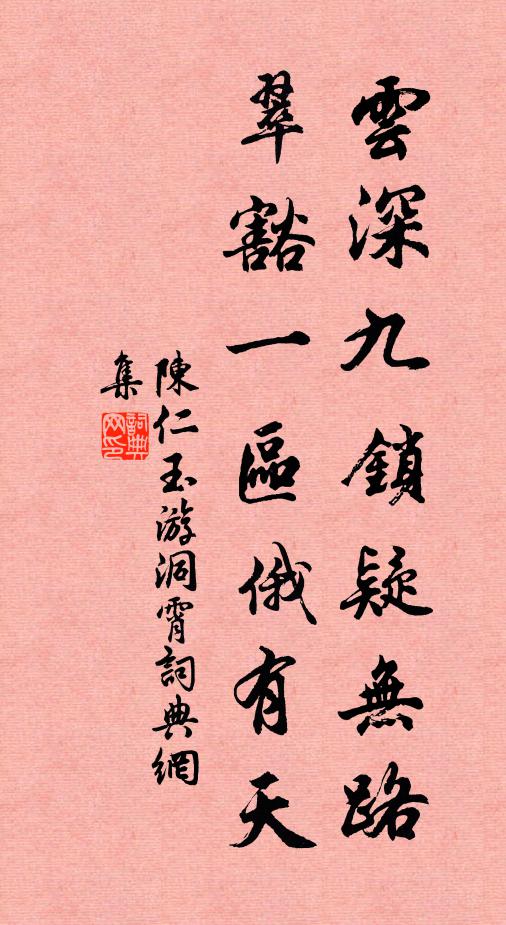 雲深九鎖疑無路
翠豁一區俄有天
陳仁玉游洞霄詞典網
集
詞典
网印